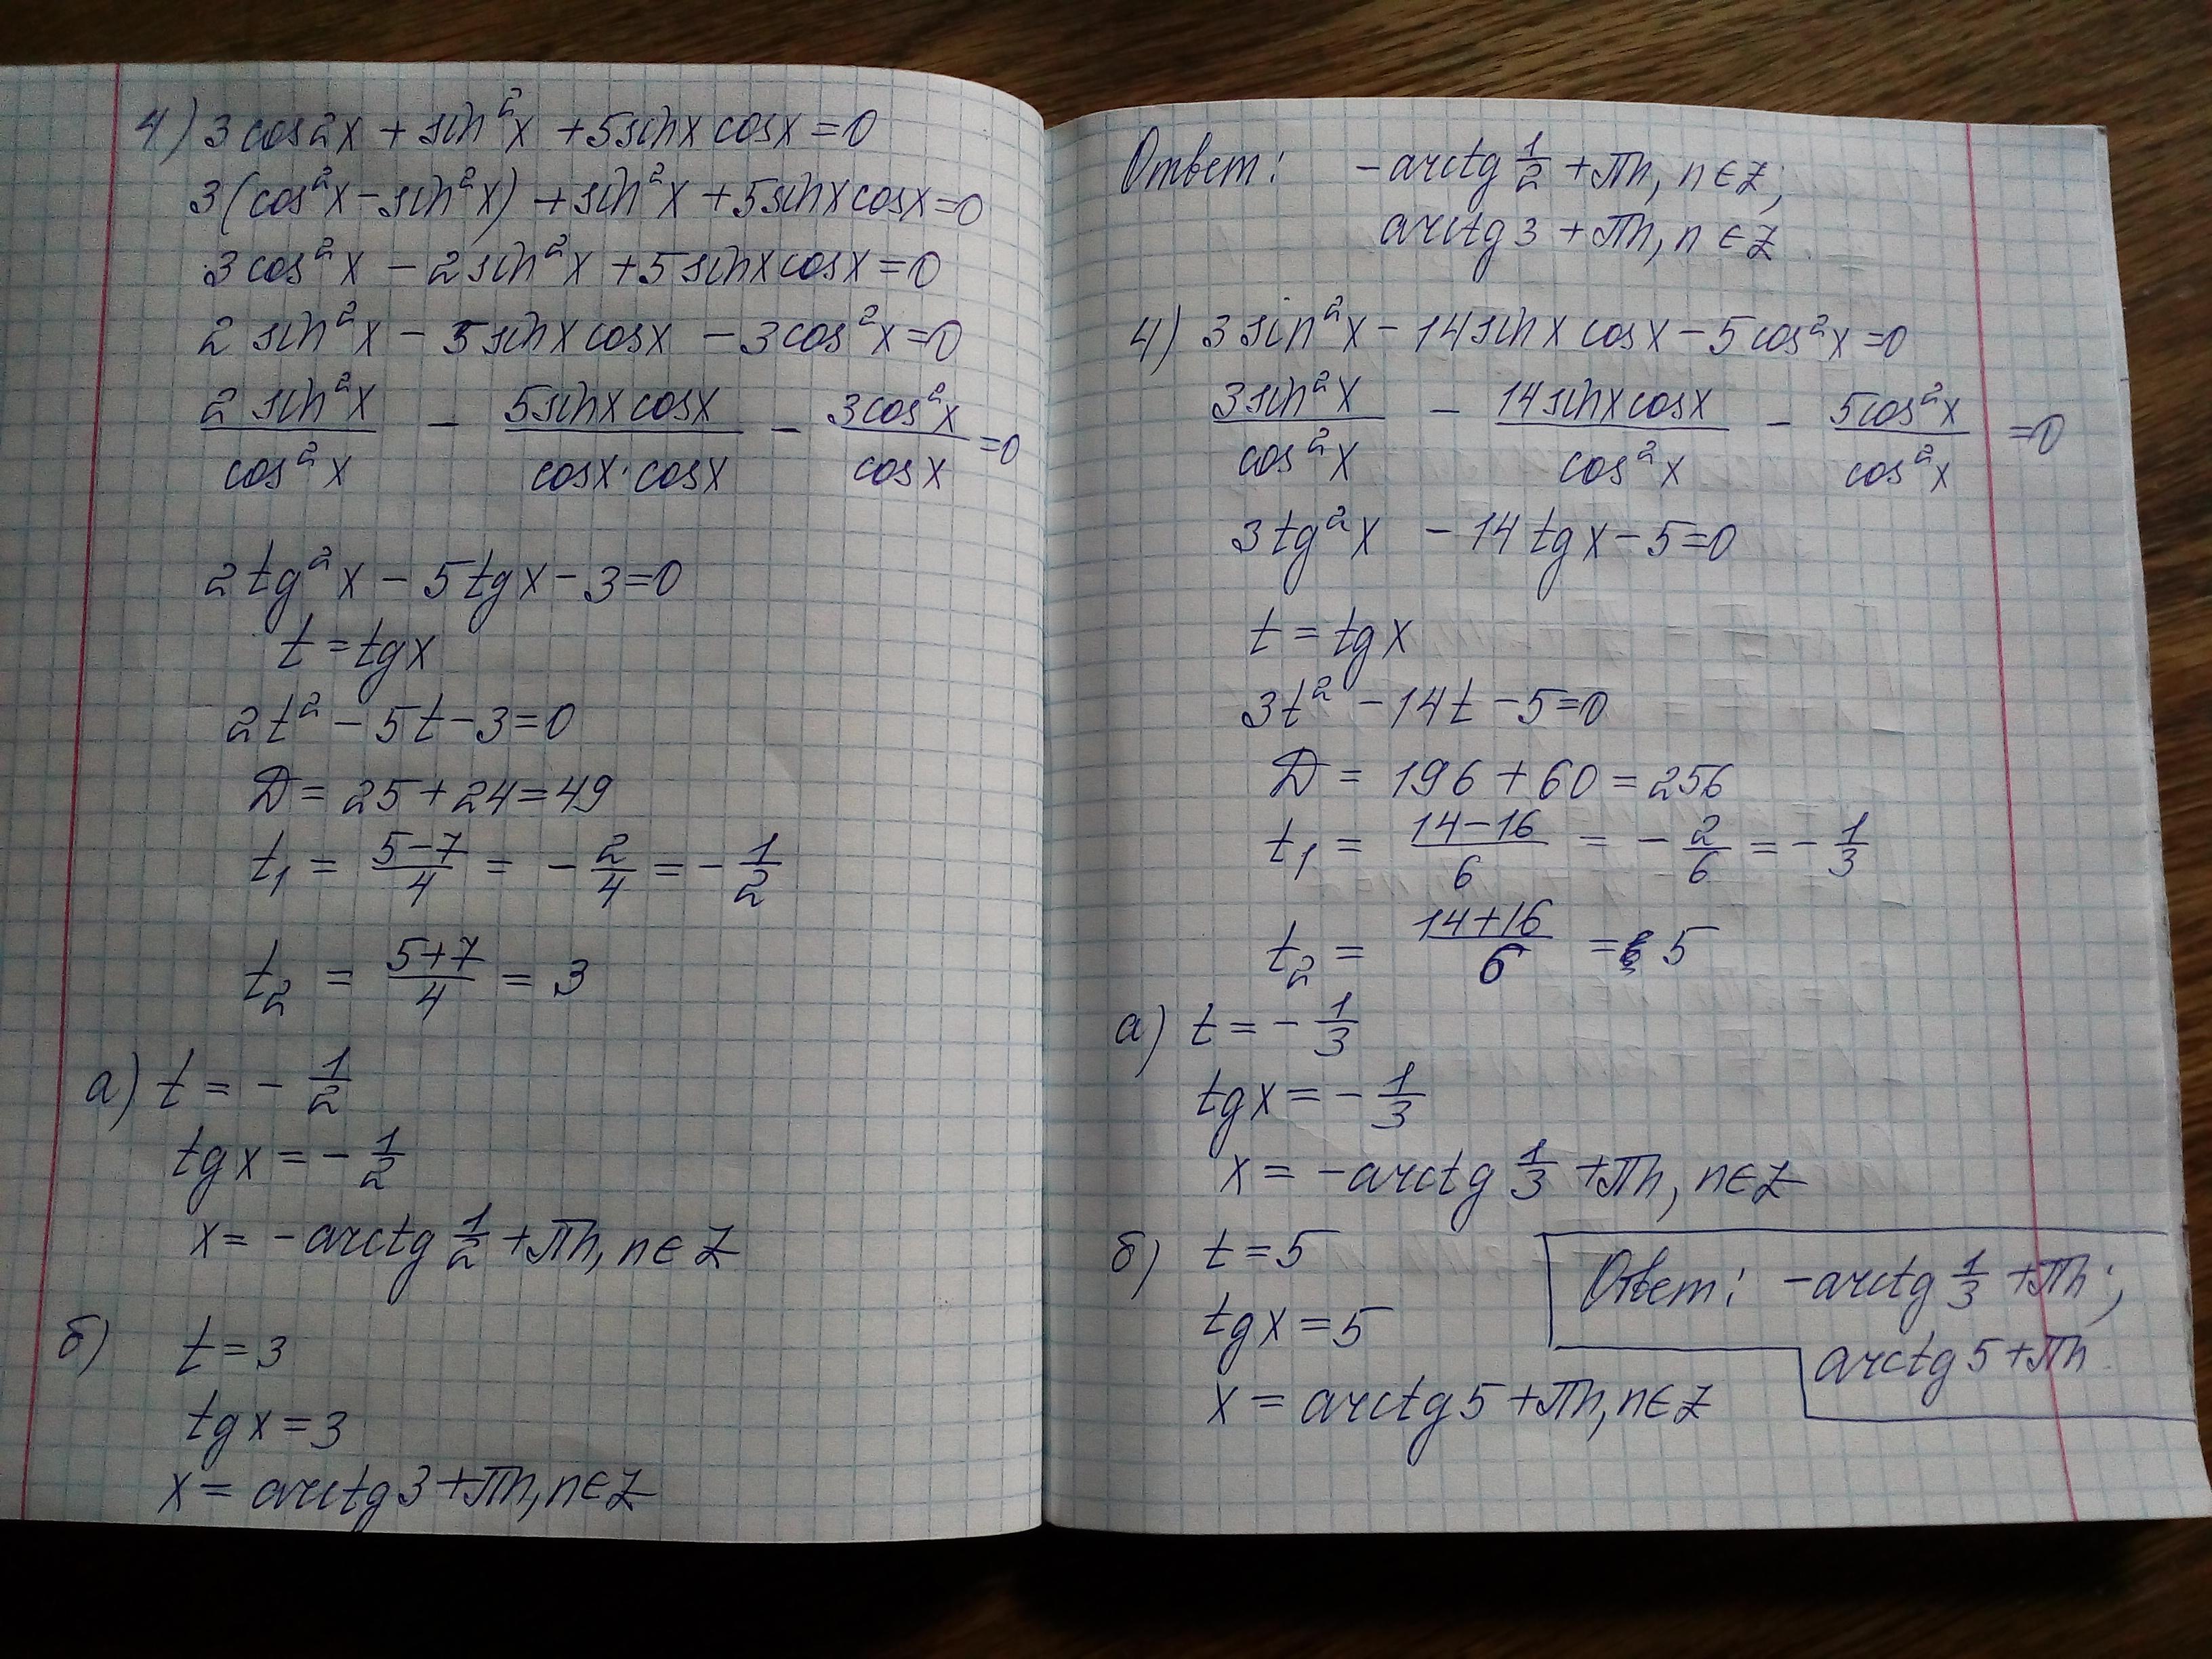 4) 3cos2x + sin²x + 5sinx cosx = 0
3(cos²x - sin²x) + sin²x + 5sinx cosx = 0
3cos²x - 2sin²x + 5sinx cosx = 0
2 sin²x - 5sinx cosx - 3cos²x = 0
2 sin²x/cos²x - 5sinx cosx/cosx·cosx - 3cos²x/cosx = 0
2tg²x - 5tgx - 3 = 0
t = tgx
2t² - 5t - 3 = 0
D = 25 + 24 = 49
t₁ = (5-7)/4 = -2/4 = -1/2
t₂ = (5+7)/4 = 3
а) t = -1/2
tgx = -1/2
x = -arctg 1/2 + πn, n∈Z
б) t = 3
tgx = 3
x = arctg3 + πn, n∈Z
Ответ: -arctg 1/2 + πn, n∈Z;
arctg3 + πn, n∈Z
4) 3sin²x - 14sinx cosx - 5cos²x = 0
3sin²x/cos²x - 14sinx cosx/cos²x - 5cos²x/cos²x = 0
3tg²x - 14tgx - 5 = 0
t = tgx
3t² - 14t - 5 = 0
D = 196 + 60 = 256
t₁ = (14-16)/6 = -2/6 = -1/3
t₂ = (14+16)/6 = 5
а) t = -1/3
tgx = -1/3
x = -arctg 1/3 + πn, n∈Z
б) t = 5
tgx = 5
x = arctg5 + πn, n∈Z
Ответ: -arctg 1/3 + πn;
arctg5 + πn.